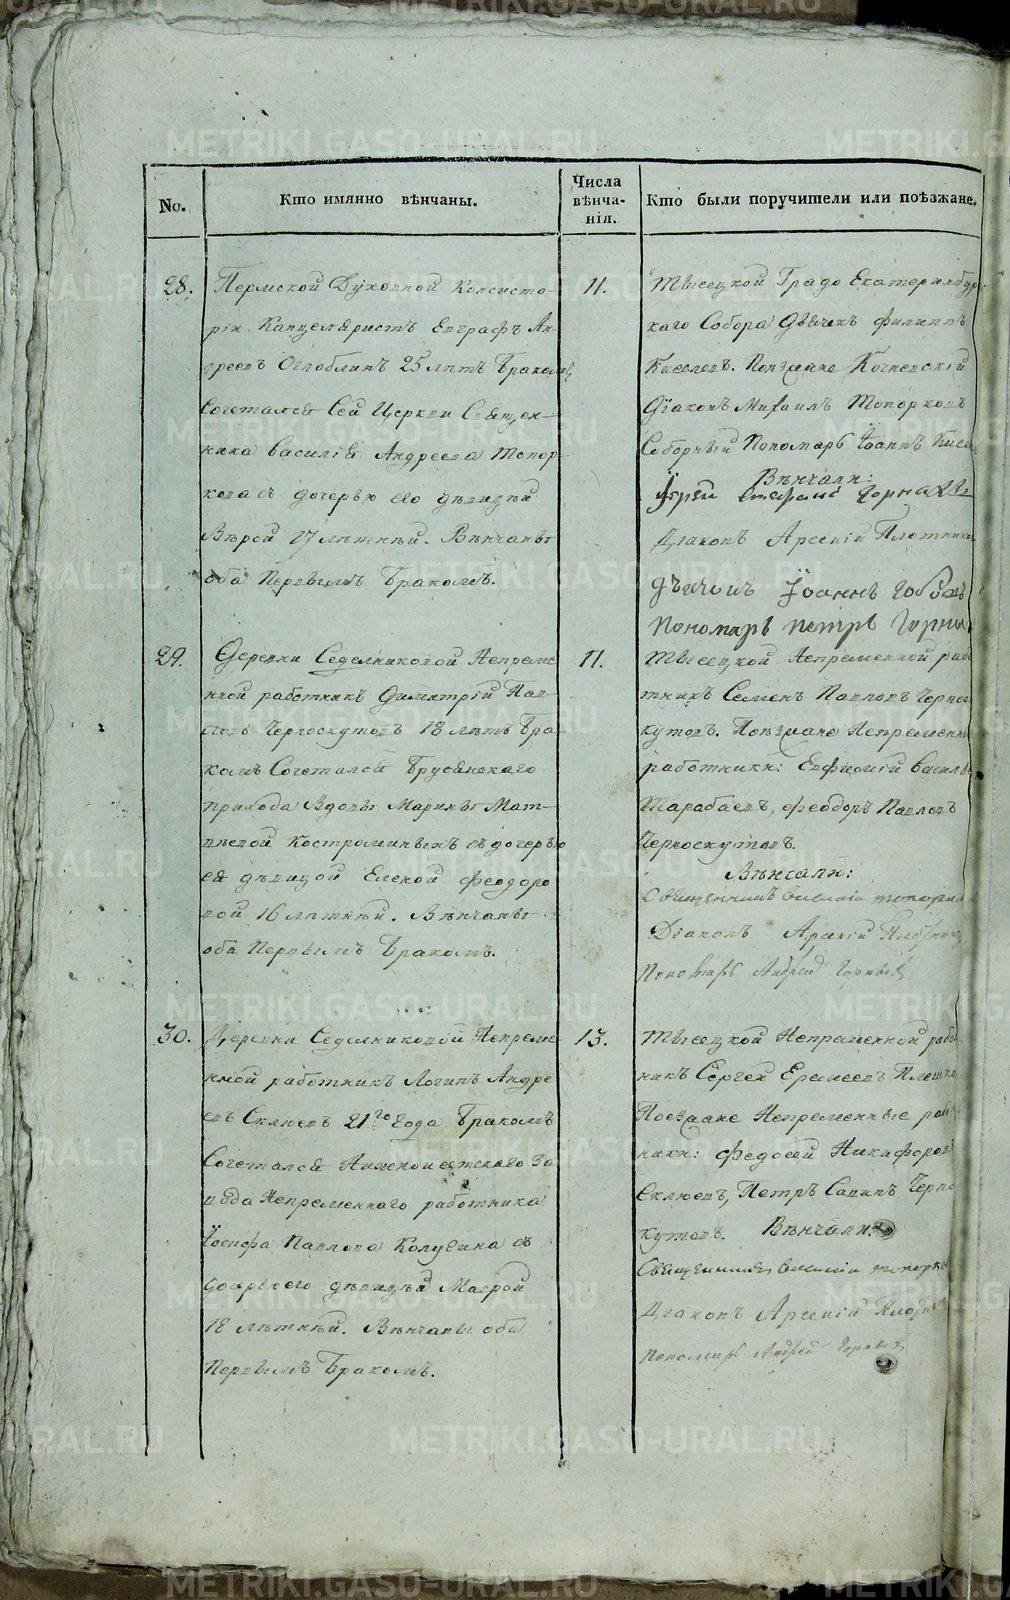 No.
Кто имянно вѣнчаны.
Числа
вѣнча-
нія.
Кто были поручители или поѣзжане.
28.
Пермской Духовной Консисто-
ріи Канцеляристъ Евграфъ Ан-
дреевъ Оглоблинъ 25 лѣтъ бракомъ
сочетался сей Церкви Священ-
ника Василія Андреева Топор-
кова съ дочерью его дѣвицей
Вѣрой 17 лѣтнѣй. Вѣнчаны
оба первымъ бракомъ.
11.
Тысецкой Градо Екатеринбур
каго Собора Дьячекъ Филиппъ
Киселевъ. Поѣзжане
Діаконъ Михаилъ Топорковъ
Соборный Пономарь Іоаннъ Кисе
Вѣнчали:
Іерей
Діаконъ Арсеній Плотник
дьячекъ Іоаннъ
Пономарь Петръ
29.
Деревни Седельниковой Непреме
нной работникъ Димитрій Пав-
ловъ Черноскутовъ 18 лѣтъ бра-
комъ сочетался Брусянскаго
прихода вдовы Марины Мат-
вѣевой Костроминыхъ съ дочерью
ея дѣвицой Еленой Феодоро
вой 16 лѣтнѣй. Вѣнчаны
оба первымъ бракомъ.
11.
Тысецкой Непременной рабо
тникъ Семенъ Павловъ Черно
кутовъ. Поѣзжане Непременны
работники: Евфимій Василь
Тарабаевъ, Феодоръ Павловъ
Черноскутовъ.
Вѣнчали:
Священникъ Василій Топорко
Діаконъ Арсеній Плотник
Пономарь Андрей
30.
Деревни Седельниковой Непреме-
нной работникъ Логинъ Андре
евъ Склюевъ 21го года бракомъ
сочетался Нижноисетскаго За
вода Непременнаго работника
Іосифа Павлова с
дочерью его дѣвицей Маврой
18 лѣтнѣй. Вѣнчаны оба
первымъ бракомъ.
13.
Тысецкой Непременной рабо
никъ Сергей Еремеевъ
Поезжане Непременные рабо
ники: Федосей Никифоров
Склюевъ, Петръ Савинъ Черно
кутовъ. Вѣнчали:
Священникъ Василій Топорко
Діаконъ Арсеній Плотник
Пономарь Андрей
METRIKI.GASO-URAL.RU